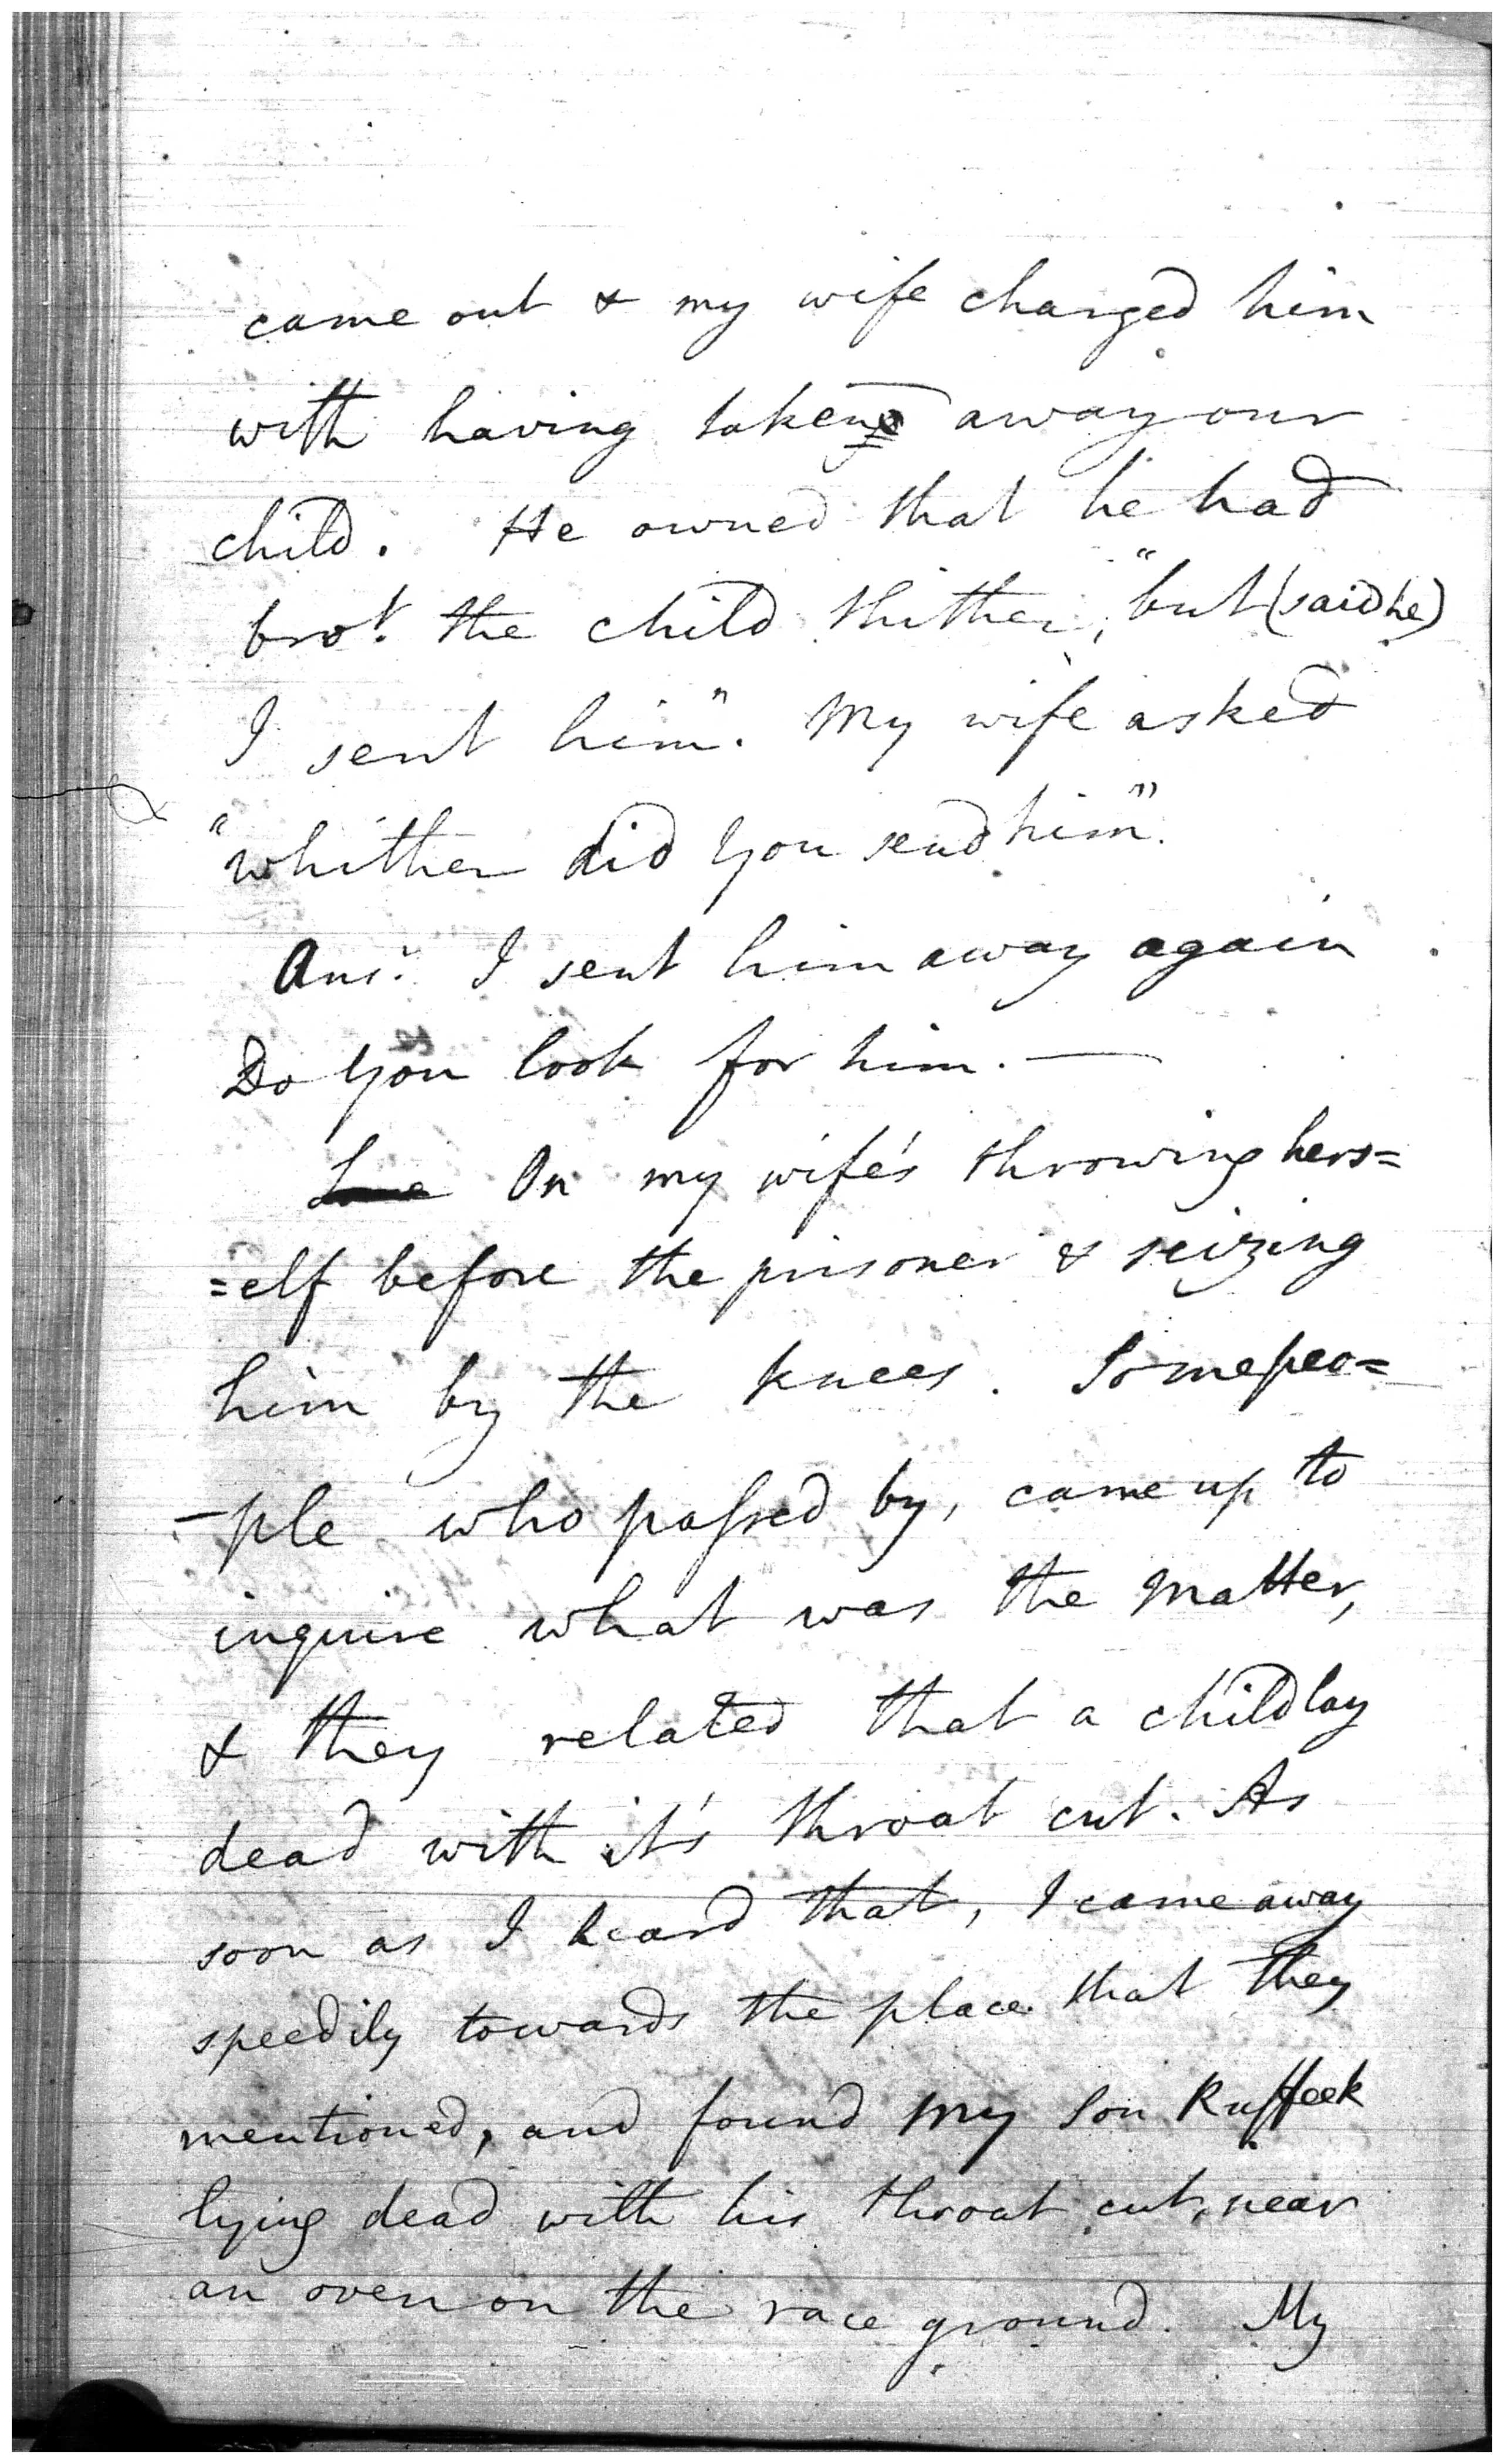 came out & my wife charged him
with having taken away our
child. He owned that he had
bro.t the child thither, "but (said he)
I sent him". My wife asked
"Whither did you send him".
Ans.r I sent him away again
Do you look for him. —
On my wife's throwing hers=
=elf before the prisoner & seizing
him by the knees. Some peo=
-ple who passed by, came up to
inquire what was the matter,
& they related that a child lay
dead with it's throat cut. As
soon as I heard that, I came away
speedily towards the place that they
mentioned, and found my Son Ruffeek
lying dead with his throat cut, near
an oven on the race ground. My